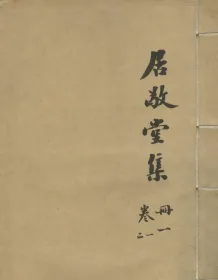 居敬堂集
冊一
卷一二